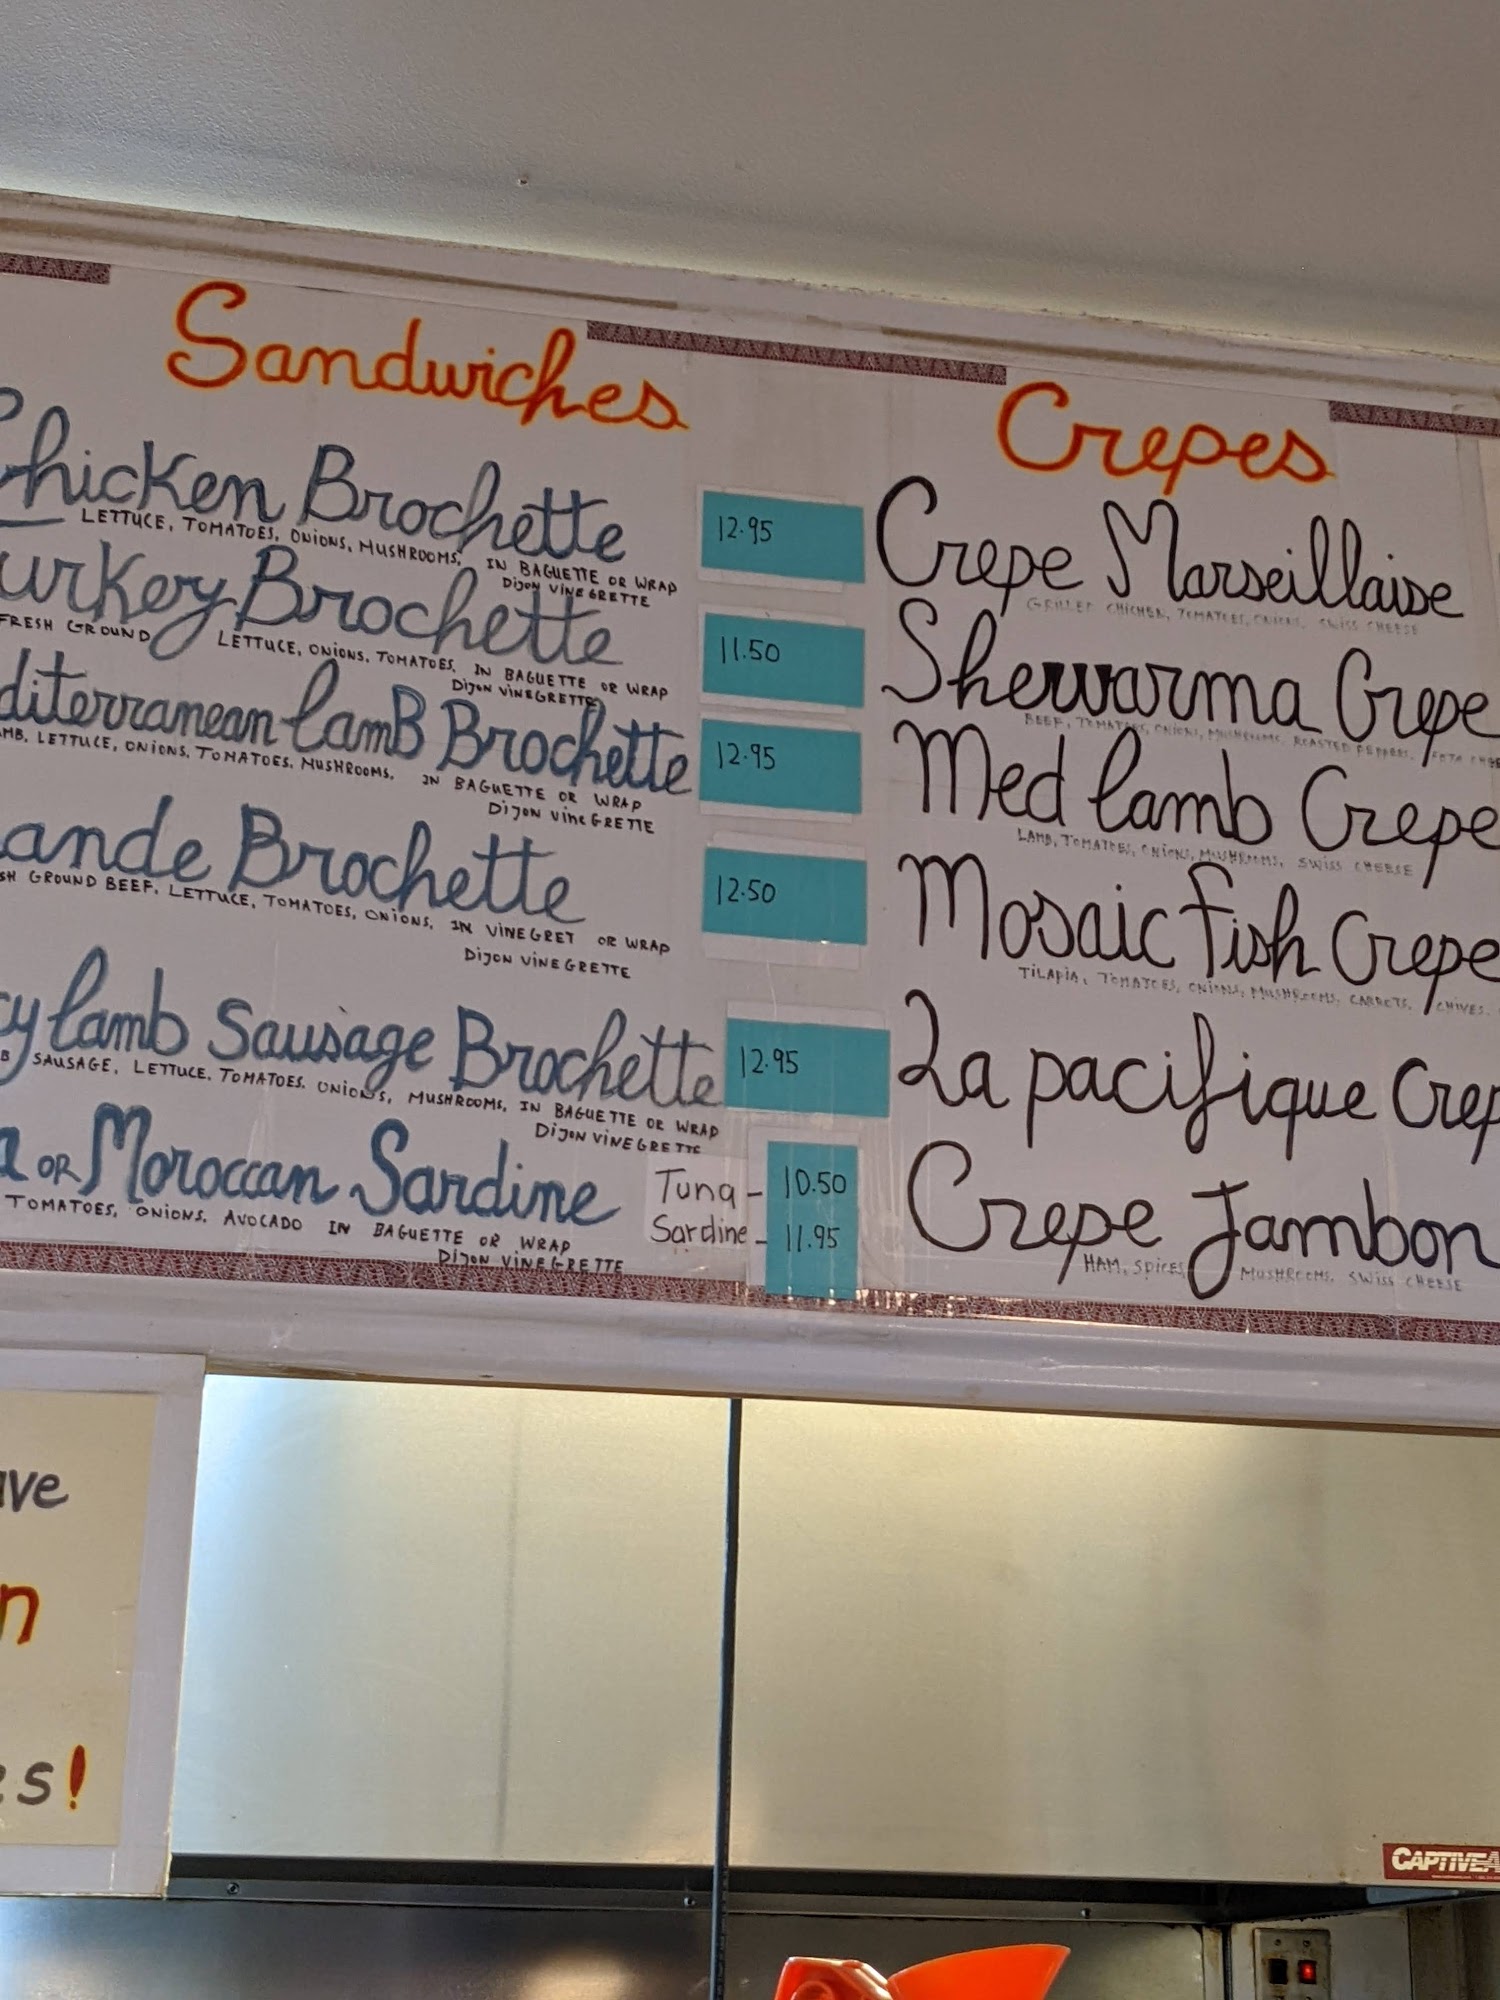 Sandwiches
Chicken Brochette
LETTUCE, TOMATOES, ONIONS, MUSHROOMS, IN BAGUETTE OR WRAP
DIJON VINEGRETTE
12.95
urkey Brochette
FRESH GROUND LETTUCE, ONIONS, TOMATOES, IN BAGUETTE OR WRAP
DIJON VINEGRETTE
11.50
diterranean lamB Brochette
MB, LETTUCE, ONIONS, TOMATOES, MUSHROOMS, IN BAGUETTE OR WRAP
DIJON VINEGRETTE
12.95
ande Brochette
SH GROUND BEEF, LETTUCE, TOMATOES, ONIONS, IN VINEGRET OR WRAP
DIJON VINEGRETTE
12.50
cy lamb Sausage Brochette
B SAUSAGE, LETTUCE, TOMATOES, ONIONS, MUSHROOMS, IN BAGUETTE OR WRAP
DIJON VINEGRETTE
12.95
a OR Moroccan Sardine
TOMATOES, ONIONS, AVOCADO IN BAGUETTE OR WRAP
DIJON VINEGRETTE
Tuna - 10.50
Sardine - 11.95
Crepes
Crepe Marseillaise
GRILLED CHICKEN, TOMATOES, ONIONS, SWISS CHEESE
Shewarma Crepe
BEEF, TOMATOES, ONIONS, MUSHROOMS, ROASTED PEPPERS, FETA CHEE
Med lamb Crepe
LAMB, TOMATOES, ONIONS, MUSHROOMS, SWISS CHEESE
Mosaic Fish Crepe
TILAPIA, TOMATOES, ONIONS, MUSHROOMS, CARROTS, CHIVES.
La pacifique Crep
Crepe Jambon
HAM, SPICES, MUSHROOMS, SWISS CHEESE
ave
n
es!
CAPTIVEA